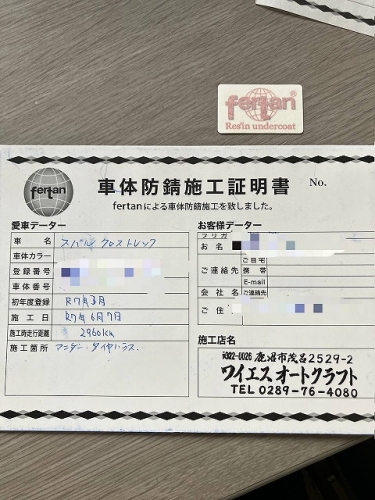 fertan®
Res'in undercoat
fertan
車体防錆施工証明書
No.
fertanによる車体防錆施工を致しました。
愛車データー
車名 スバル クロストレック
車体カラー
登録番号
車体番号
初年度登録 R7年3月
施工日 R7年6月7日
施工時走行距離 2960km
施工箇所
お客様データー
フリガ
お名
ご連絡先
ご自宅
携帯
E-mail
会社名
ご連絡先
ご住
施工店名
〒322-0026 鹿沼市茂呂2529-2
ワイエスオートクラフト
TEL 0289-76-4080